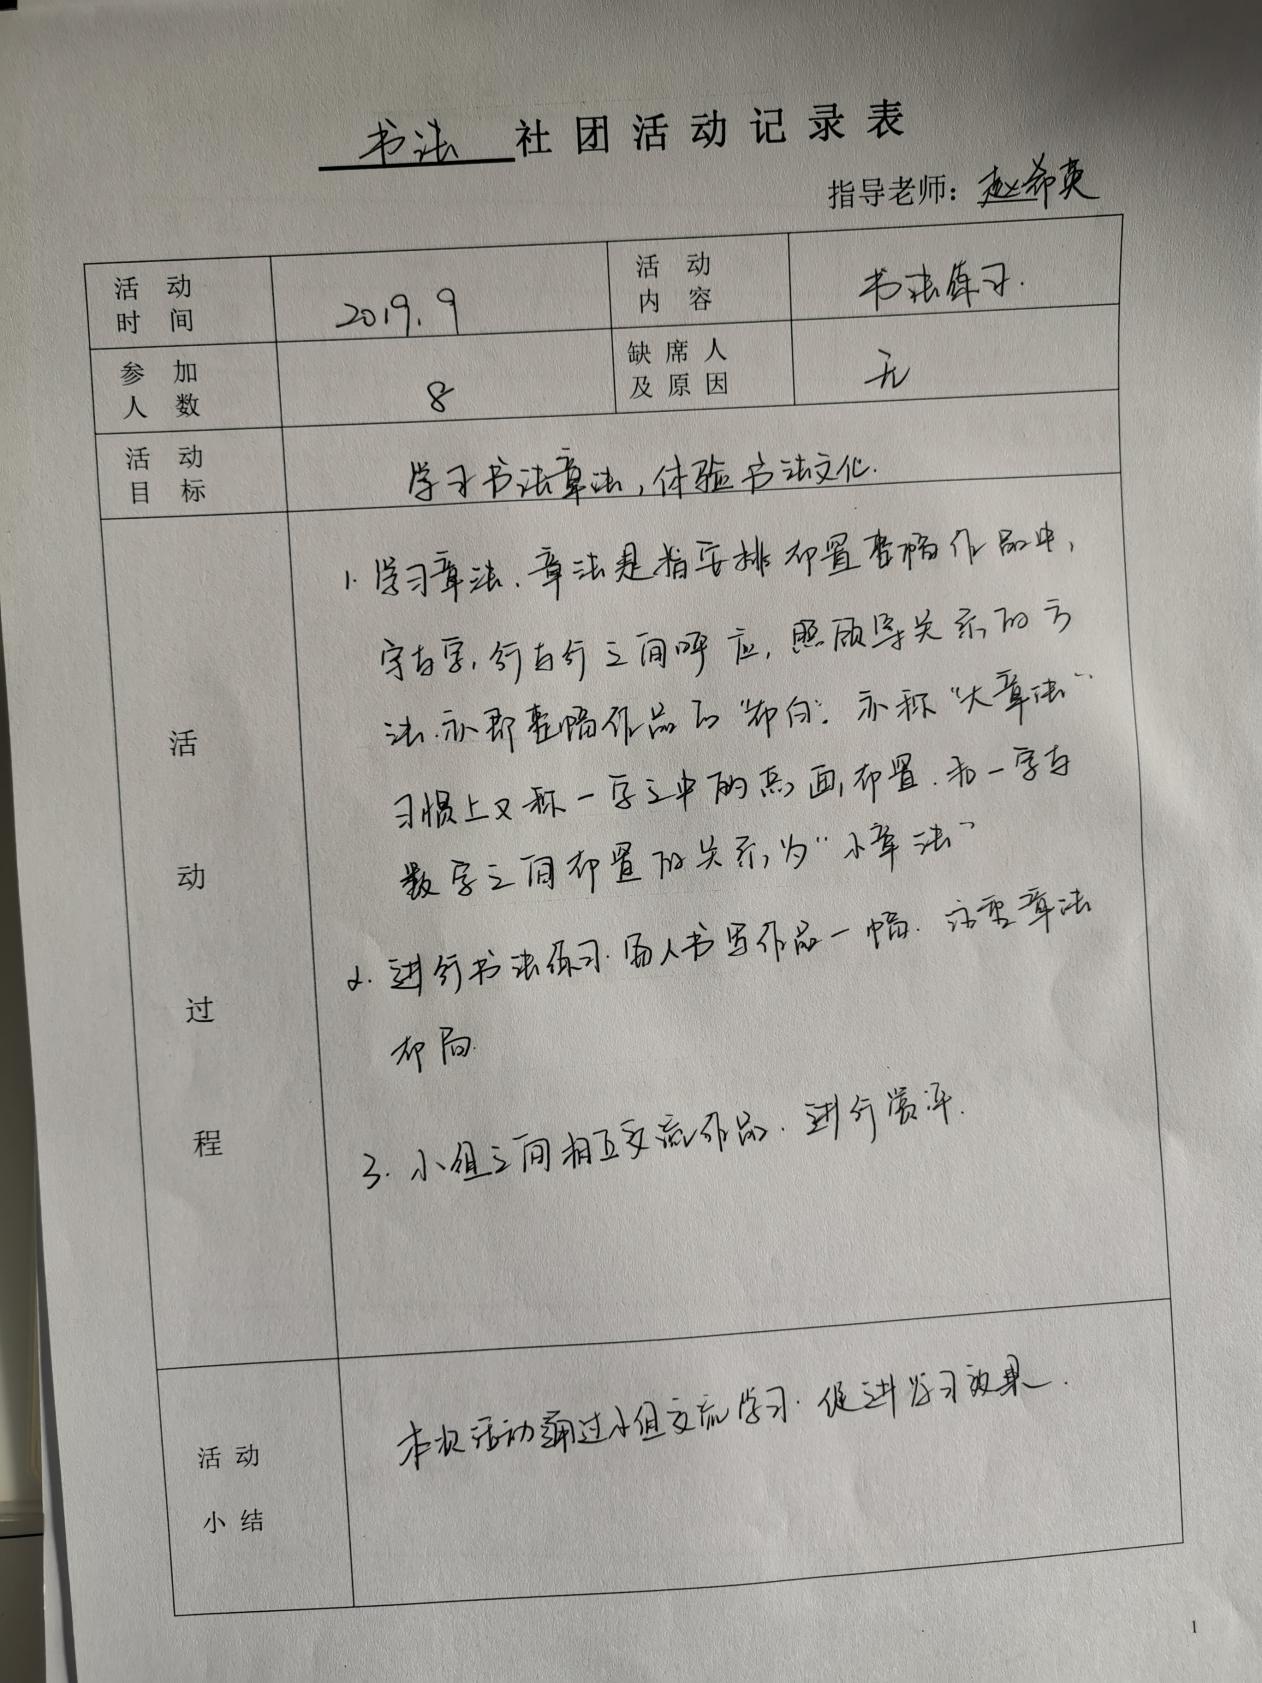 书法 社团活动记录表
指导老师：赵希英
活动时间 2019.9 活动内容 书法练习.
参加人数 8 缺席人及原因 无
活动目标 学习书法章法，体验书法文化.
活动过程
1. 学习章法、章法是指安排布置整幅作品中，
字与字，行与行之间呼应，照顾等关系的方
法.亦即整幅作品的“布白”. 亦称“大章法”
习惯上又称一字之中的点画布置.和一字与
数字之间布置的关系为“小章法”
2. 进行书法练习.每人书写作品一幅. 注重章法
布局.
3. 小组之间相互交流作品. 进行赏评.
活动小结
本次活动通过小组交流学习. 促进学习效果.
1